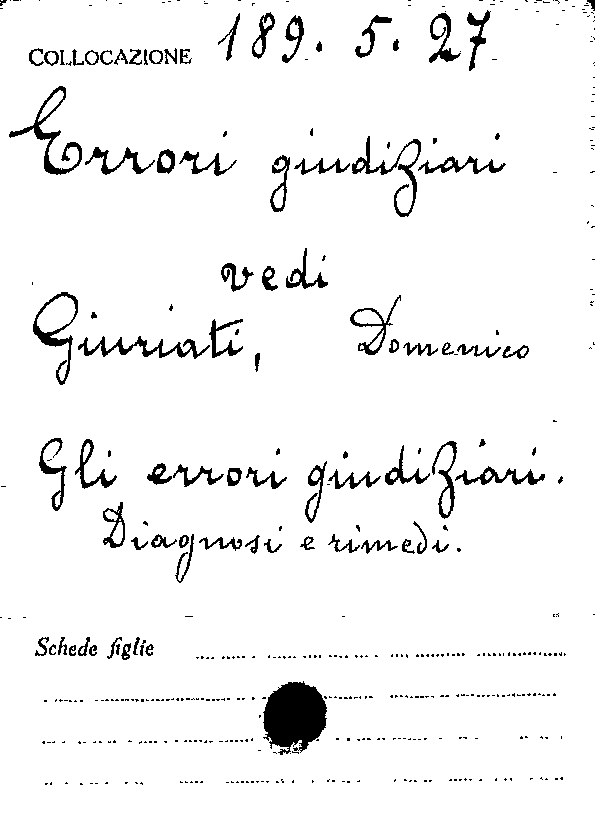 COLLOCAZIONE 189. 5. 27
Errori giudiziari
vedi
Giuriati, Domenico
Gli errori giudiziari.
Diagnosi e rimedi.
Schede figlie